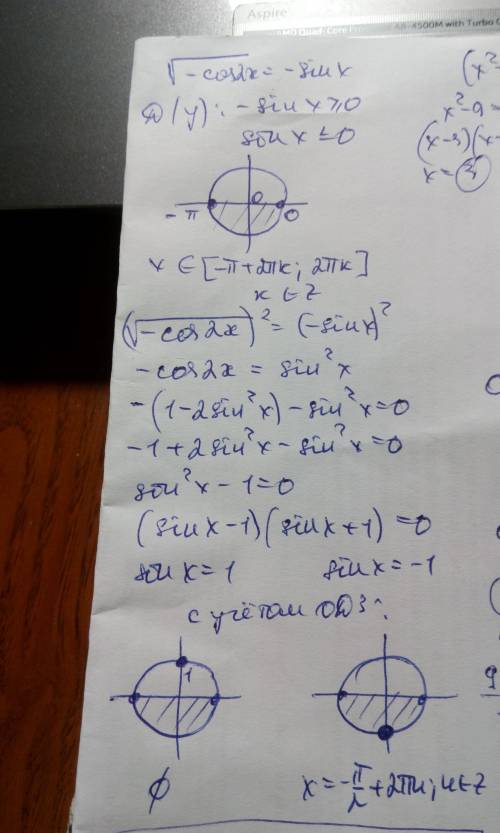 Aspire
AMD Quad-Core
A8-4500M with Turbo C
√-cos2x = -sinx
D(y): -sinx ≥ 0
sinx ≤ 0
-π 0 0
x ∈ [-π+2πk; 2πk]
k ∈ Z
(√-cos2x)² = (-sinx)²
-cos2x = sin²x
-(1-2sin²x)-sin²x=0
-1+2sin²x-sin²x=0
sin²x-1=0
(sinx-1)(sinx+1)=0
sinx=1 sinx=-1
с учётом ОДЗ:
1
∅ x=-π/2+2πn; n∈Z
(x²-
x²-9=
(x-3)(x-
x=3
9